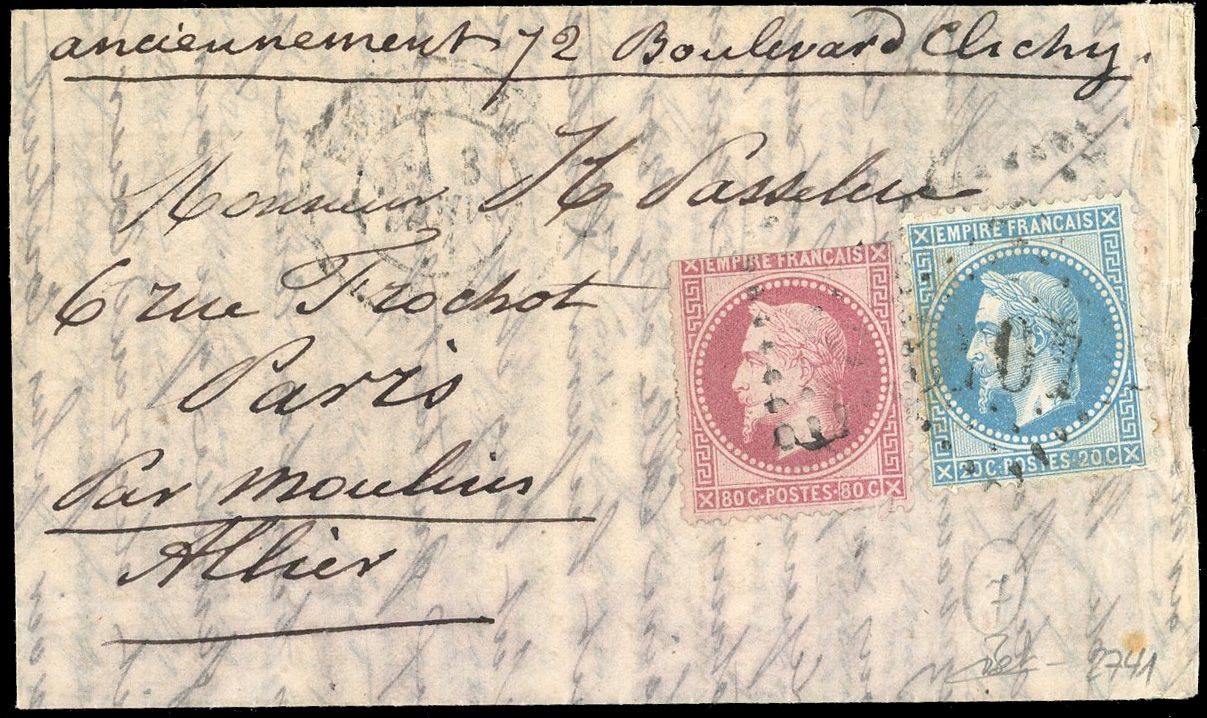 anciennement 72 Boulevard Clichy.
Monsieur H Passeleu
6 rue Frochot
Paris
Par moulins
Allier
EMPIRE FRANÇAIS
80 C·POSTES·80 C
EMPIRE FRANÇAIS
20 C·POSTES·20 C
7
2741